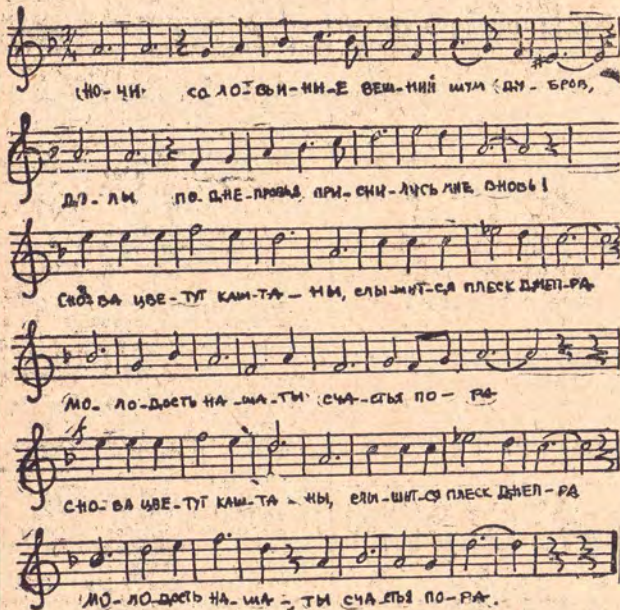 НО-ЧИ СО ЛО-ВЬИ-НЫ-Е ВЕШ-НИЙ ШУМ ДУ-БРОВ,
ДО-ЛЫ ПО-ДНЕ-ПРОВЬЯ ПРИ-СНИ-ЛИСЬ МНЕ ВНОВЬ!
СНО-ВА ЦВЕ-ТУТ КАШ-ТА-НЫ, СЛЫ-ШИТ-СЯ ПЛЕСК ДНЕП-РА
МО-ЛО-ДОСТЬ НА-ША-ТЫ СЧА-СТЬЯ ПО-РА
f
СНО-ВА ЦВЕ-ТУТ КАШ-ТА-НЫ, СЛЫ-ШИТ-СЯ ПЛЕСК ДНЕП-РА
МО-ЛО-ДОСТЬ НА-ША-ТЫ СЧА-СТЬЯ ПО-РА.